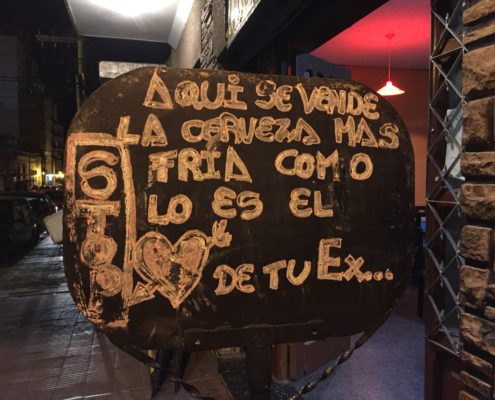 AQUI SE VENDE
LA CERVEZA MAS
FRIA COMO
LO ES EL
DE TU EX...